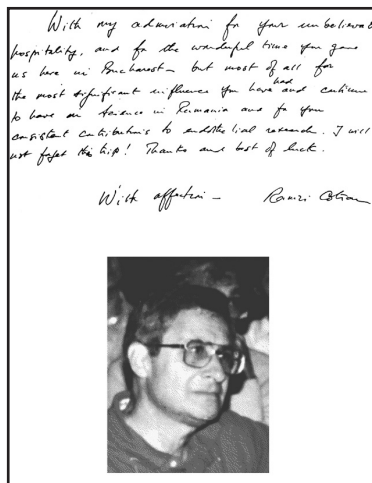 With my admiration for your unbelievable
hospitality, and for the wonderful time you gave
us here in Bucharest – but most of all for
the most significant influence you have had and continue
to have on science in Rumania and for your
consistent contributions to endothelial research. I will
not forget this trip! Thanks and best of luck.
With affection – Ramzi Cotran